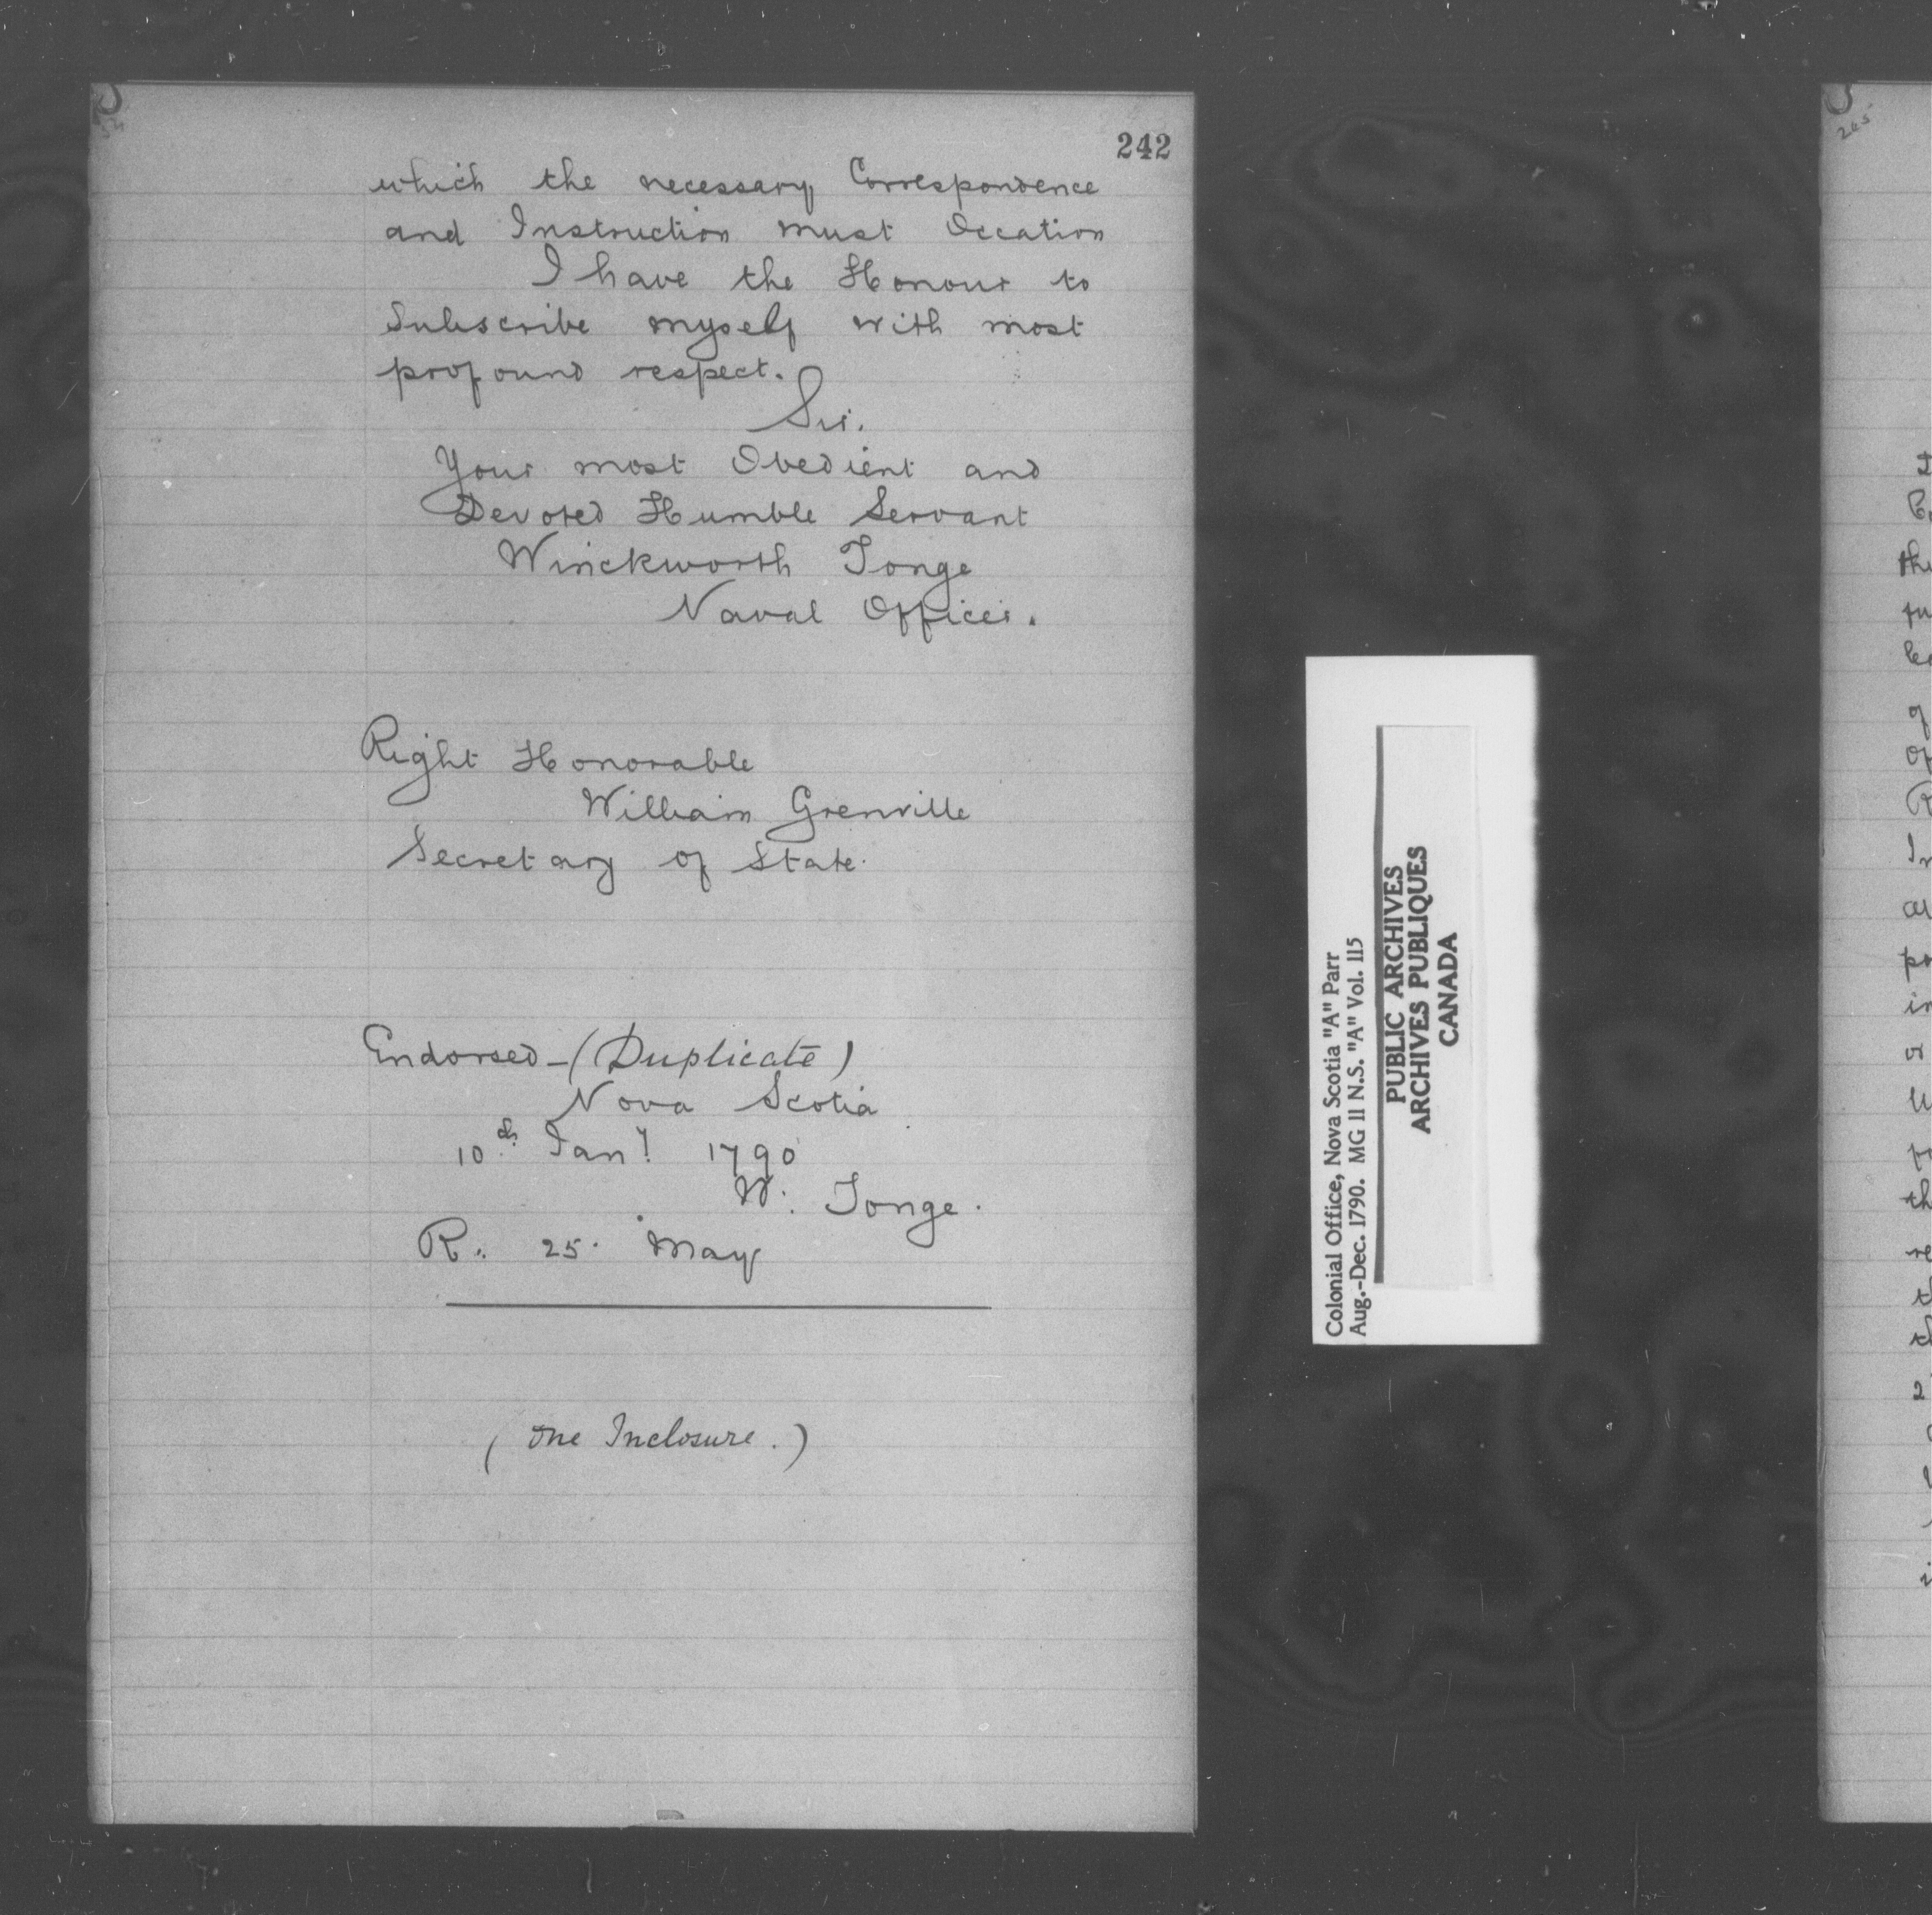 242
which the necessary Correspondence
and Instruction must Occation
I have the Honour to
Subscribe myself with most
profound respect.
Sir.
Your most Obedient and
Devoted Humble Servant
Winckworth Tonge
Naval Officer.
Right Honorable
William Grenville
Secretary of State.
Endorsed - (Duplicate)
Nova Scotia
10th Jany 1790
W. Tonge.
R. 25. May
(One Inclosure.)
Colonial Office, Nova Scotia "A" Parr
Aug.-Dec. 1790. MG 11 N.S. "A" Vol. 115
PUBLIC ARCHIVES
ARCHIVES PUBLIQUES
CANADA